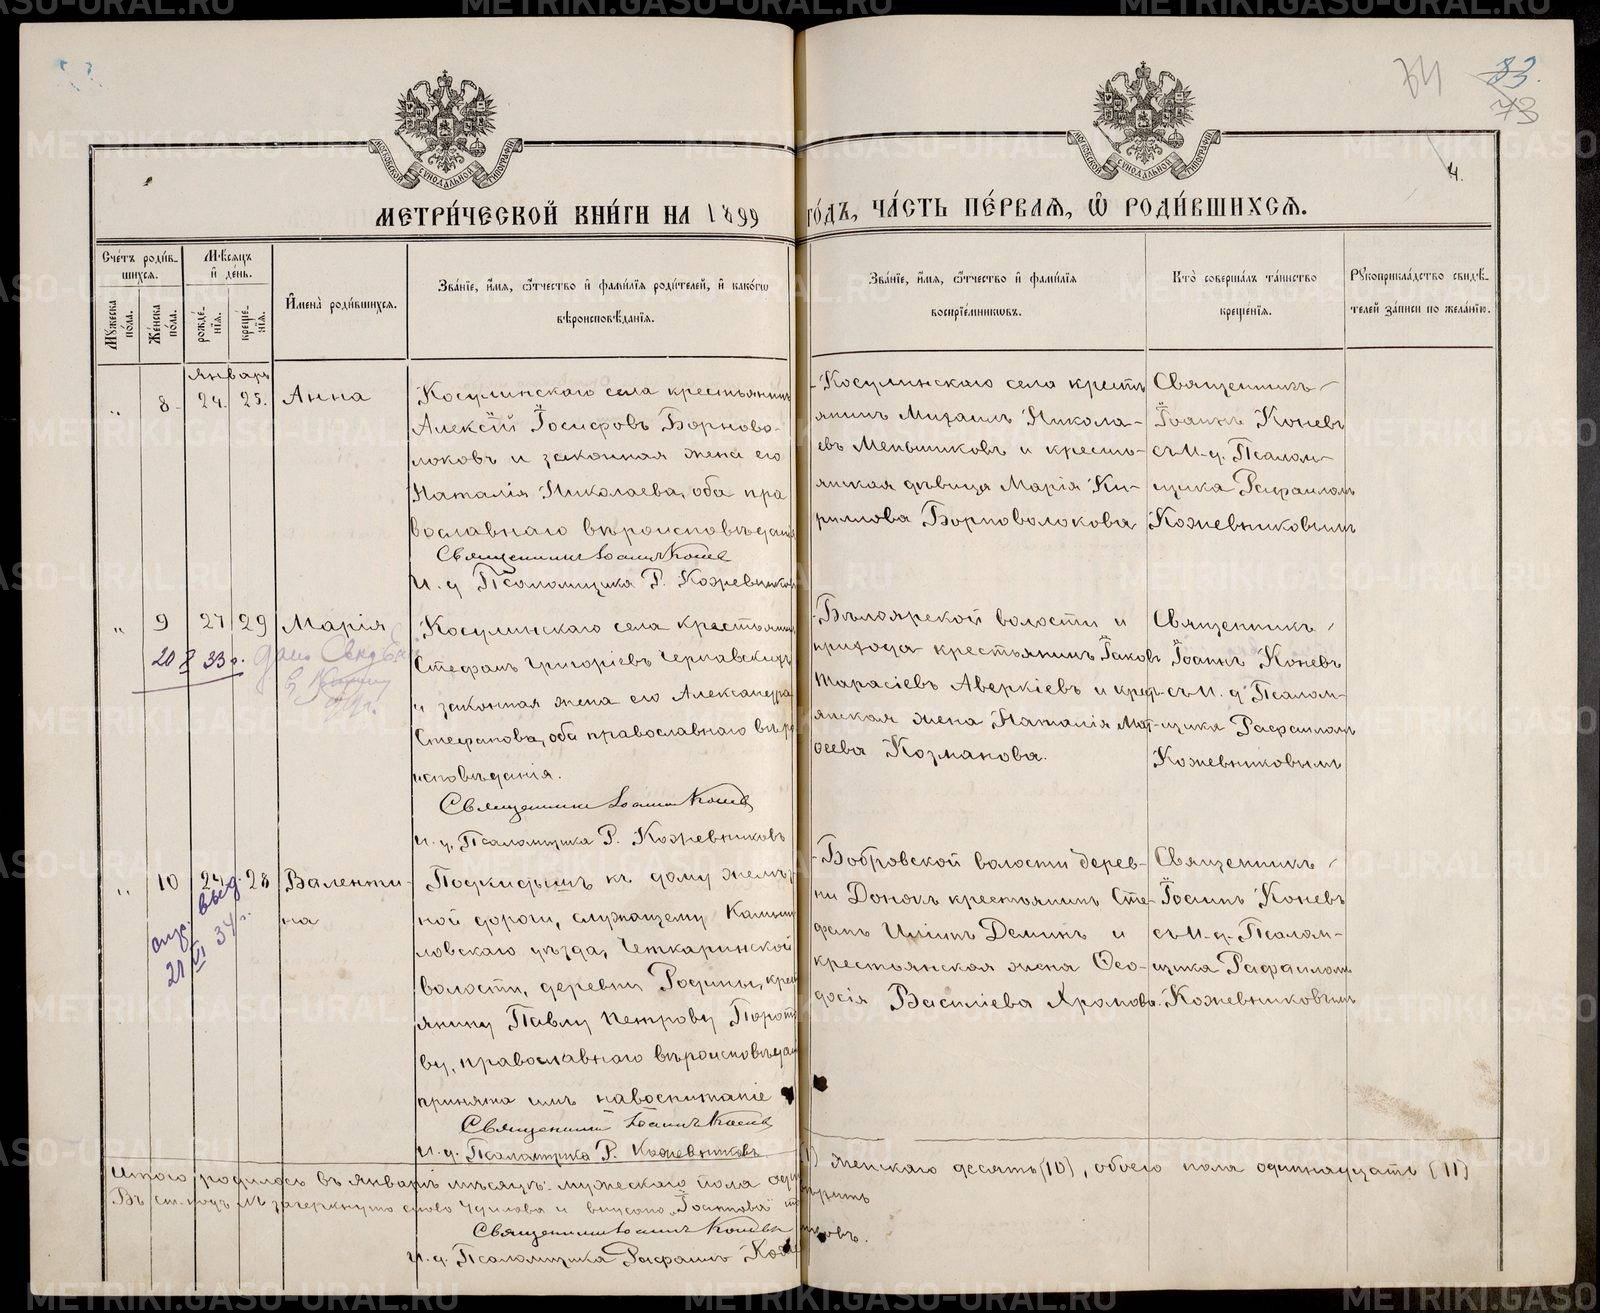 74
83.
73
4.
МОСКОВСКОЙ СУНОДАЛЬНОЙ ТИПОГРАФІИ
МОСКОВСКОЙ СУНОДАЛЬНОЙ ТИПОГРАФІИ
МЕТРИ́ЧЕСКОЙ КНИ́ГИ НА 1899 ГО́ДЪ, ЧА́СТЬ ПЕ́РВАѦ, Ѡ҆ РОДИ́ВШИХСѦ.
Сче́тъ роди́в-
шихся.
Мꙋ́жеска по́ла.
Же́нска по́ла.
Мѣ́сяцъ
и҆ де́нь.
рожде́-
нїя.
креще́-
нїя.
И҆мена̀ роди́вшихся.
Зва́нїе, и҆́мя, ѻ҆́тчество и҆ фами́лїя роди́телей, и҆ како́гѡ
вѣроисповѣ́данїя.
Зва́нїе, и҆́мя, ѻ҆́тчество и҆ фами́лїя
воспрїе́мникѡвъ.
Кто̀ соверша́лъ та́инство
креще́нїя.
Рꙋкоприкла́дство свидѣ́-
телей за́писи по жела́нїю.
Январь
„ 8 24. 25. Анна
Косулинскаго села крестьянинъ
Алексѣй Іосифовъ Борново-
локовъ и законная жена его
Наталія Николаева, оба пра
вославнаго вѣроисповѣданія
Священникъ Іоаннъ Коневъ
И. д. Псаломщика Р. Кожевниковъ
Косулинскаго села кресть
янинъ Михаилъ Никола-
евъ Меньшиковъ и кресть-
янская дѣвица Марія Ки-
риллова Борноволокова
Священникъ
Іоаннъ Коневъ
съ И. д. Псалом-
щика Рафаиломъ
Кожевниковымъ
„ 9 27 29 Марія
20 X 33 г.
Косулинскаго села крестьянинъ
Стефанъ Григоріевъ Чернавскихъ
и законная жена его Александра
Стефанова, оба православнаго вѣро
исповѣданія.
Священникъ Іоаннъ Коневъ
И. д. Псаломщика Р. Кожевниковъ
Бѣлоярской волости и
прихода крестьянинъ Іаковъ
Тарасіевъ Аверкіевъ и крест-
янская жена Наталія Мат-
ѳеева Козманова.
Священникъ
Іоаннъ Коневъ
съ И. д. Псалом-
щика Рафаиломъ
Кожевниковымъ
„ 10 24. 28 Валенти-
на
выд.
21 VI 34 г.
Подкидышъ къ дому желѣз
ной дороги, служащему Камыш
ловскаго уѣзда, Четкаринской
волости, деревни Родины, крест
янину Павлу Петрову Порот
ву, православнаго вѣроисповѣдан
принята имъ на воспитаніе
Священникъ Іоаннъ Коневъ
И. д. Псаломщика Р. Кожевниковъ
Бобровской волости дерев-
ни Донокъ крестьянинъ Сте-
фанъ Илїинъ Деминъ и
крестьянская жена Ѳео-
досія Василіева Храмова.
Священникъ
Іоаннъ Коневъ
съ И. д. Псалом-
щика Рафаиломъ
Кожевниковымъ
Итого родилось въ Январѣ мѣсяцѣ: мужескаго пола оди (1) женскаго десять (10), обоего пола одиннадцать (11)
Священникъ Іоаннъ Коневъ
И. д. Псаломщика Рафаилъ Кожевниковъ.
METRIKI.GASO-URAL.RU